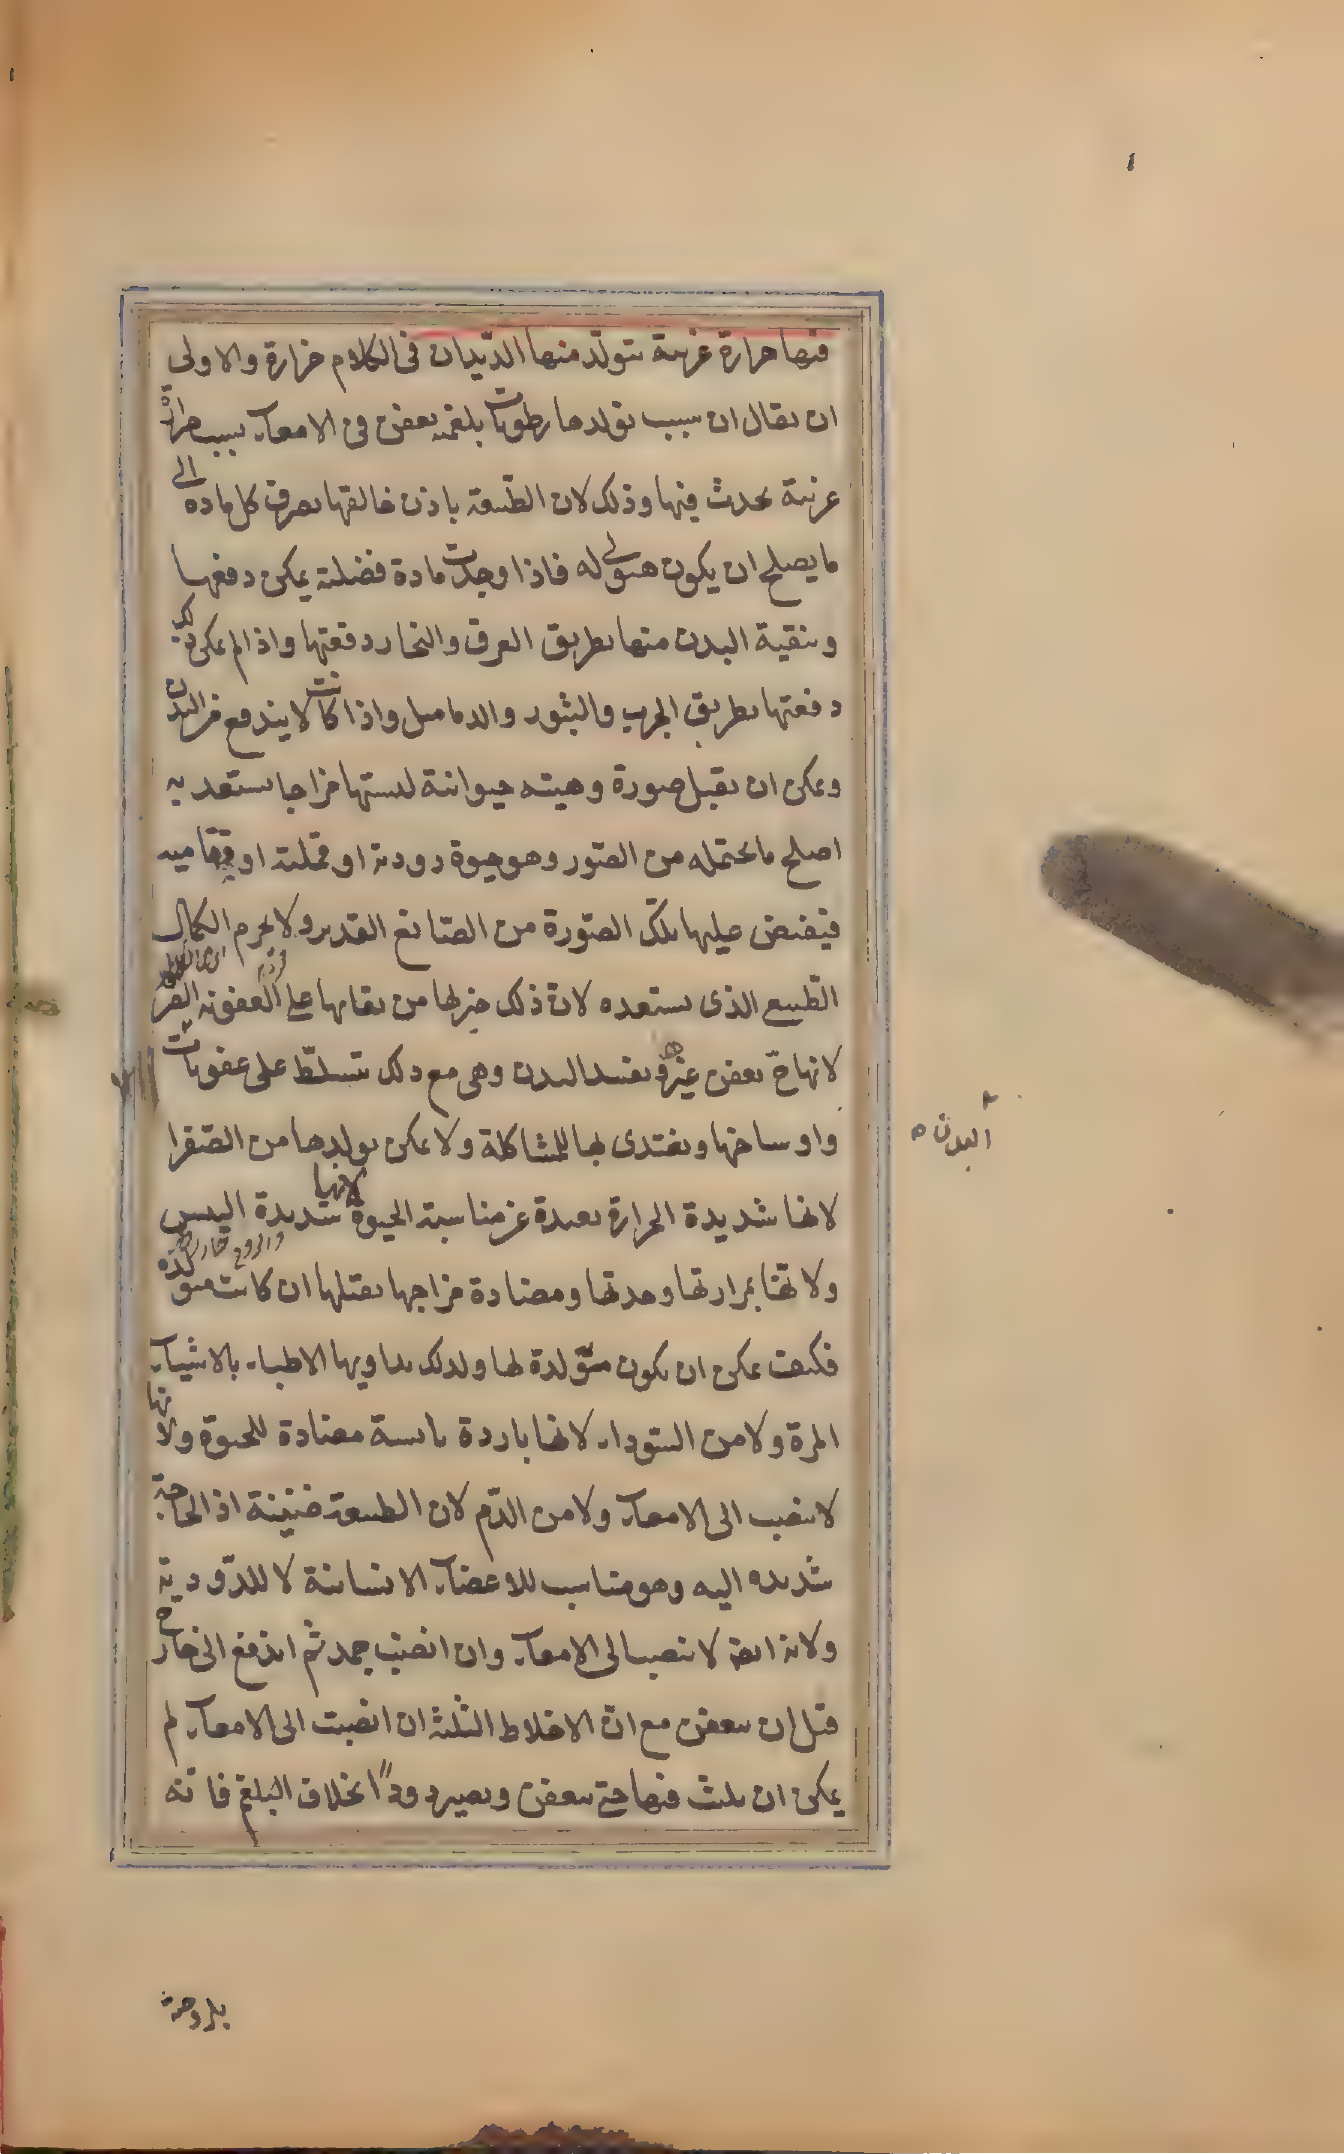 فيها حرارة غريبة تتولد منها الديدان فى الكلام حزازة والاولى
ان يقال ان سبب تولدها رطوبات بلغمية تعفن فى الامعاء بسبب حرارة
غريبة تحدث فيها وذلك لان الطبيعة باذن خالقها تصرف كل مادة الى
ما يصلح ان يكون هيولى له فاذا وجدت مادة فضلية يمكن دفعها
وتنقية البدن منها بطريق العرق والبخار دفعتها واذا لم يمكن ذلك
دفعتها بطريق الجرب والبثور والدماميل واذا كانت لا يندفع من البدن
ويمكن ان تقبل صورة وهيئه حيوانية لبستها مزاجا تستعد به
اصلح ما تحتمله من الصور وهو حيوة دودية او قملية او
فيفيض عليها تلك الصورة من الصانع القدير ولا يحرم الكمال
الطبيع الذى تستعده لان ذلك خير لها من بقائها على العفونة
لانها ح تعفن غيرها وتفسد البدن وهى مع ذلك تتسلط على عفونات
البدن
واوساخها وتغتدى بها للمشاكلة ولا يمكن تولدها من الصفرا
لانها شديدة الحرارة بعيدة عن مناسبة الحيوة لانها شديدة اليبس
ولانها بمرارتها وحدتها ومضادة مزاجها تقتلها ان كانت متولدة
فكيف يمكن ان تكون متولدة لها ولذلك يداويها الاطباء بالاشياء
المرة ولا من السوداء لانها باردة يابسة مضادة للحيوة ولانها
لا تنصب الى الامعاء ولا من الدم لان الطبيعة ضنينة اذ الحاجة
شديده اليه وهو مناسب للاعضاء الانسانية لا للدودية
ولانه ايضا لا تنصب الى الامعاء وان انصب جمد ثم اندفع الى خارج
قبل ان يتعفن مع ان الاخلاط الثلثة ان انصبت الى الامعاء لم
يمكن ان تلبث فيها حتى يتعفن ويصير دودًا بخلاف البلغم فانه